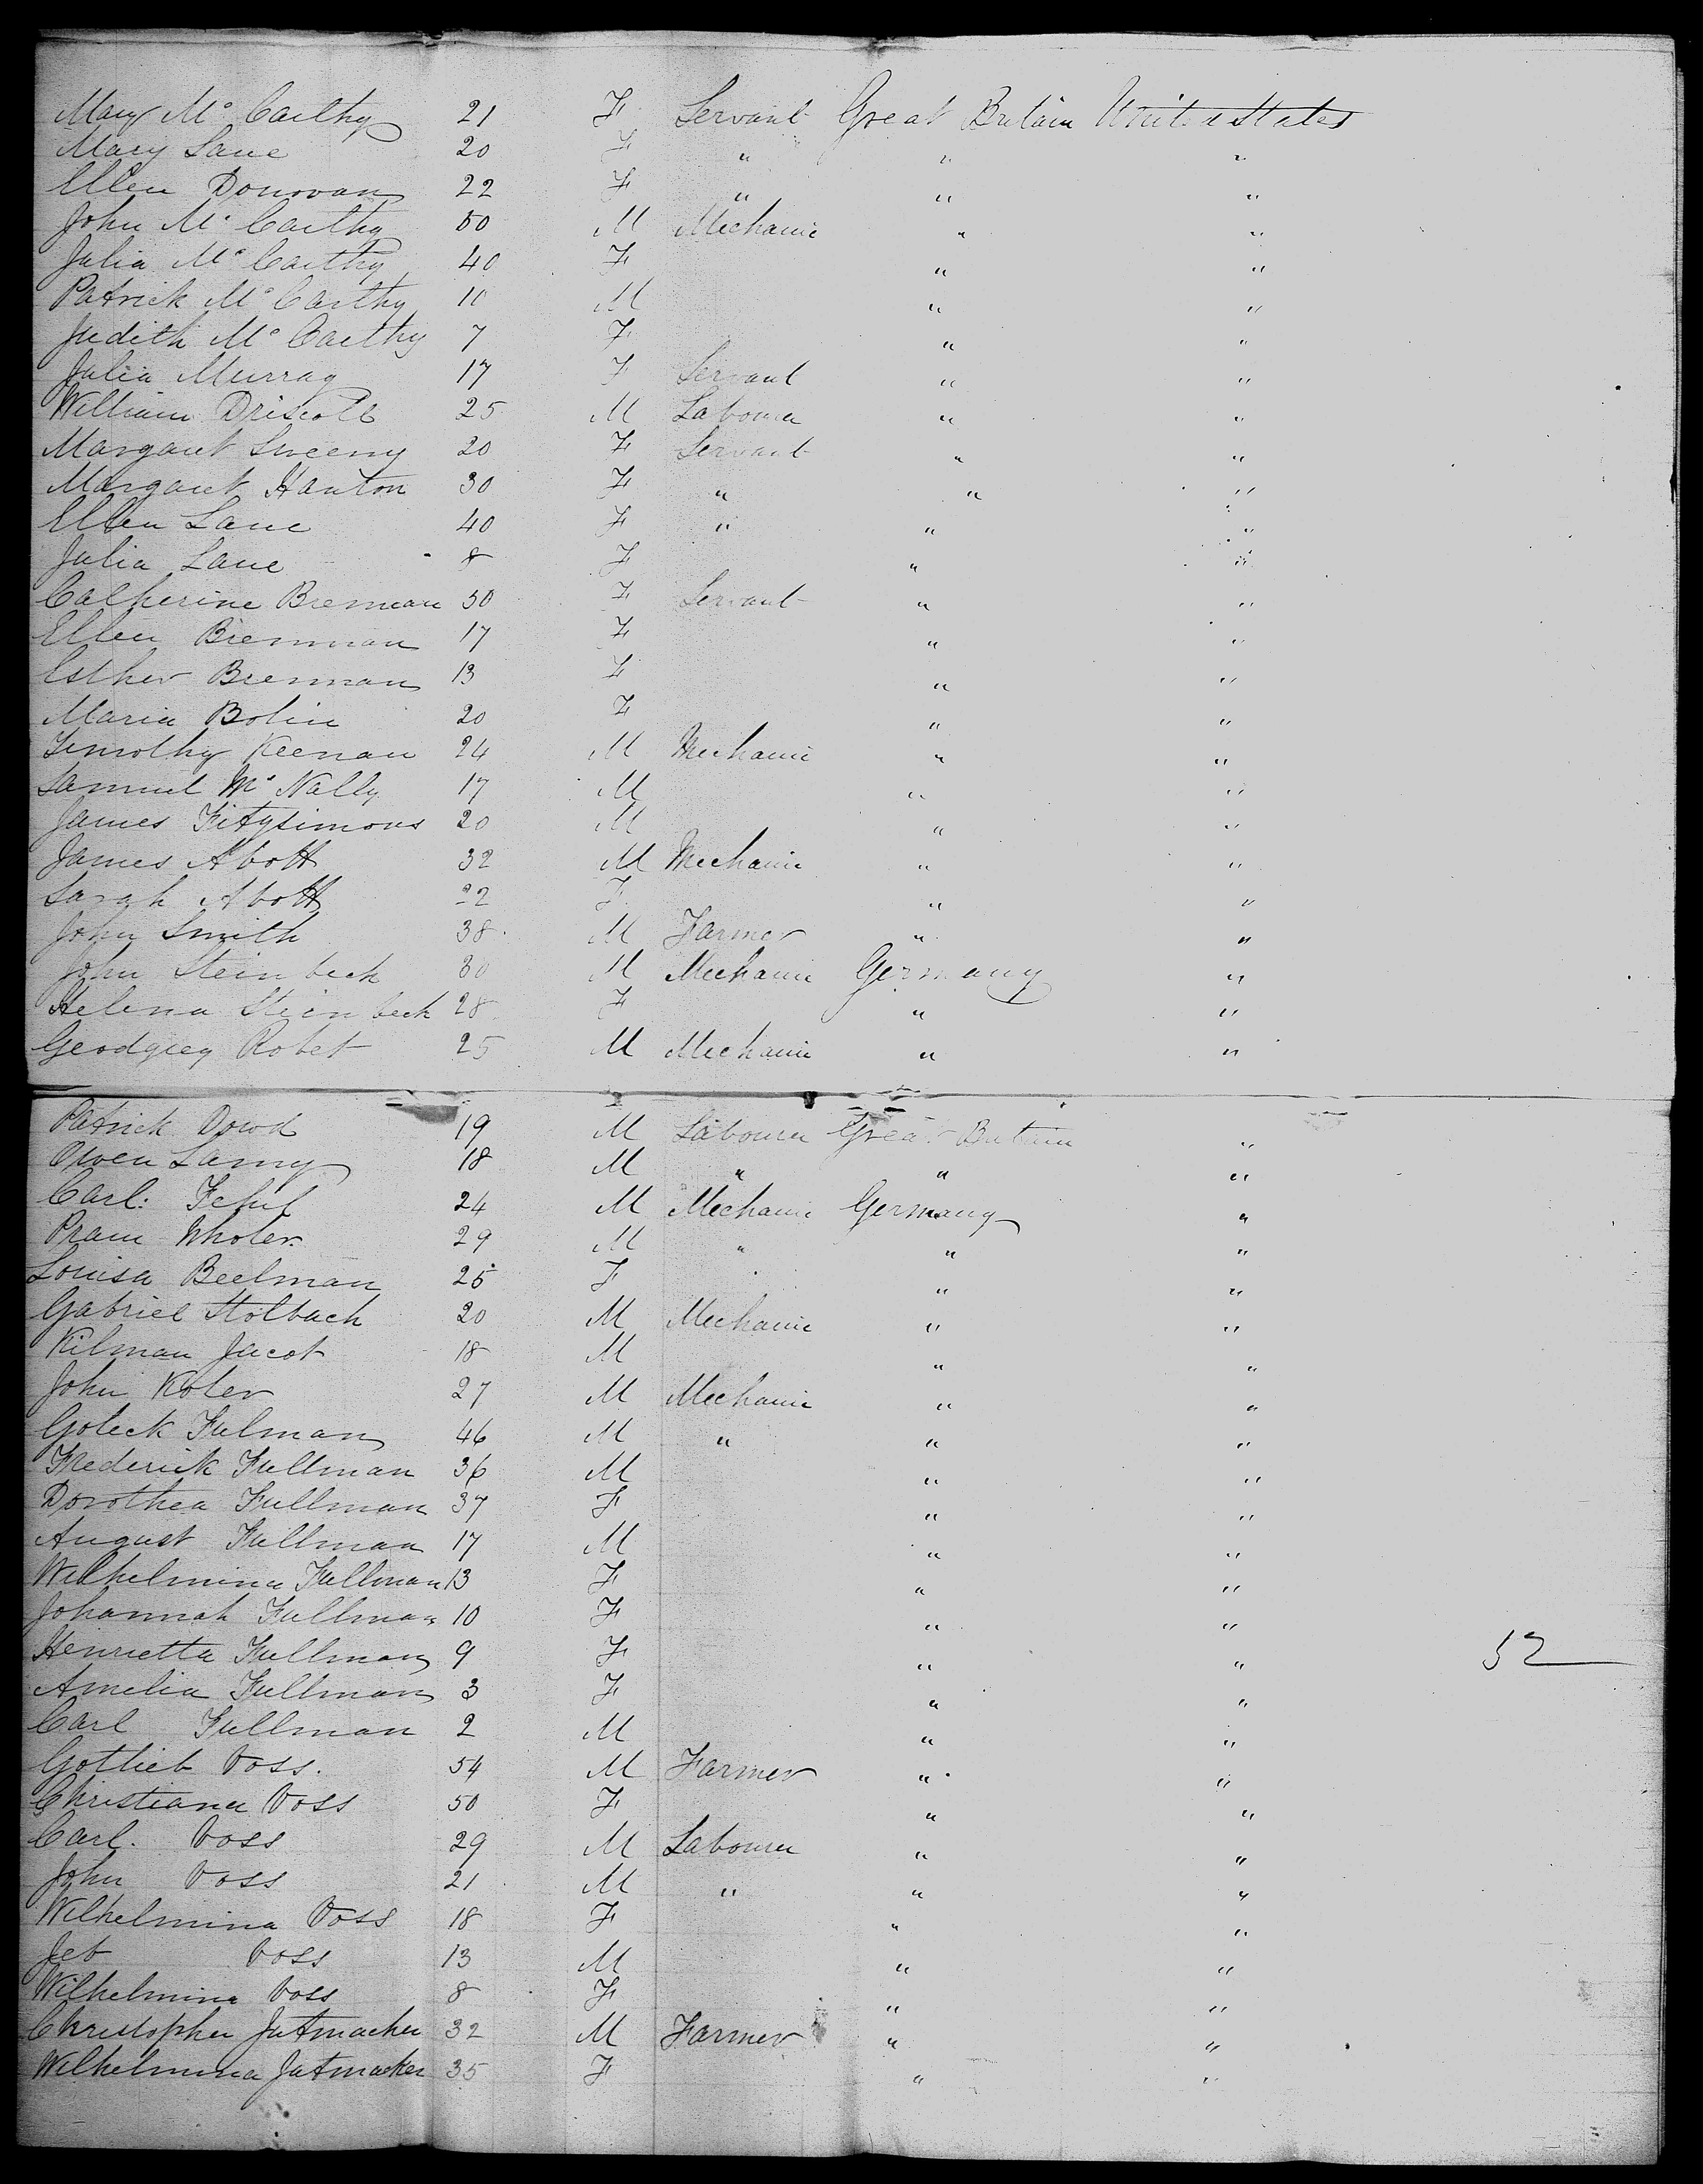 Mary Mc Carthy 21 F Servant Great Britain United States
Mary Lane 20 F " " "
Ellen Donovan 22 F " " "
John Mc Carthy 50 M Mechanic " "
Julia Mc Carthy 40 F " "
Patrick Mc Carthy 10 M " "
Judith Mc Carthy 7 F " "
Julia Murray 17 F Servant " "
William Driscoll 25 M Labourer " "
Margaret Sweeny 20 F Servant " "
Margaret Hanton 30 F " " "
Ellen Lane 40 F " " "
Julia Lane 8 F " "
Catherine Brennan 50 F Servant " "
Ellen Brennan 17 F " "
Esther Brennan 13 F " "
Maria Bolin 20 F " "
Timothy Keenan 24 M Mechanic " "
Samuel Mc Nally 17 M " "
James Fitzsimons 20 M " "
James Abott 32 M Mechanic " "
Sarah Abott 22 F " "
John Smith 38 M Farmer " "
John Steinbeck 30 M Mechanic Germany "
Helena Steinbeck 28 F " "
Robet 25 M Mechanic " "
Patrick Dowd 19 M Labourer Great Britain "
Owen Lamy 18 M " " "
Carl 24 M Mechanic Germany "
Wholer 29 M " " "
Louisa Beelman 25 F " "
Gabriel Stolbach 20 M Mechanic " "
Kilman Jacob 18 M " "
John Koler 27 M Mechanic " "
Goleck Fulman 46 M " " "
Frederick Fullman 36 M " "
Dorothea Fullman 37 F " "
August Fullman 17 M " "
Wilhelmina Fullman 13 F " "
Johannah Fullman 10 F " "
Henrietta Fullman 9 F " " 52
Amelia Fullman 3 F " "
Carl Fullman 2 M " "
Gottlieb Voss. 54 M Farmer " "
Christiana Voss 50 F " "
Carl. Voss 29 M Labourer " "
John Voss 21 M " " "
Wilhelmina Voss 18 F " "
Voss 13 M " "
Wilhelmina Voss 8 F " "
Christopher Jutmacher 32 M Farmer " "
Wilhelmina Jutmacher 35 F " "